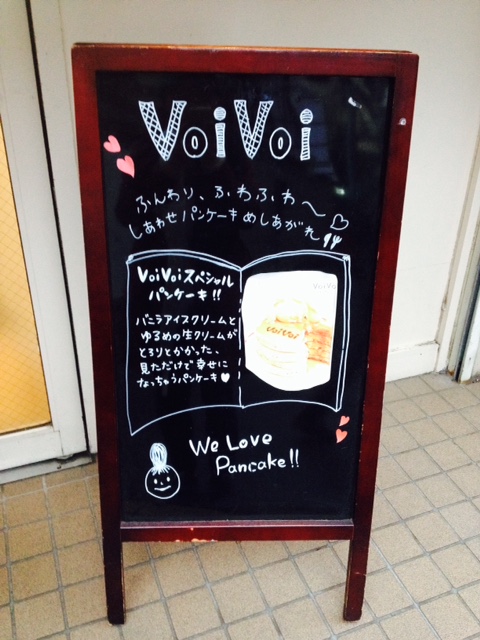 VoiVoi
ふんわり、ふわふわ〜♡
しあわせパンケーキめしあがれ
VoiVoiスペシャル
パンケーキ!!
バニラアイスクリームと
ゆるめの生クリームが
とろりとかかった、
見ただけで幸せに
なっちゃうパンケーキ♥
VoiVoi
voivoi
We Love
Pancake!!